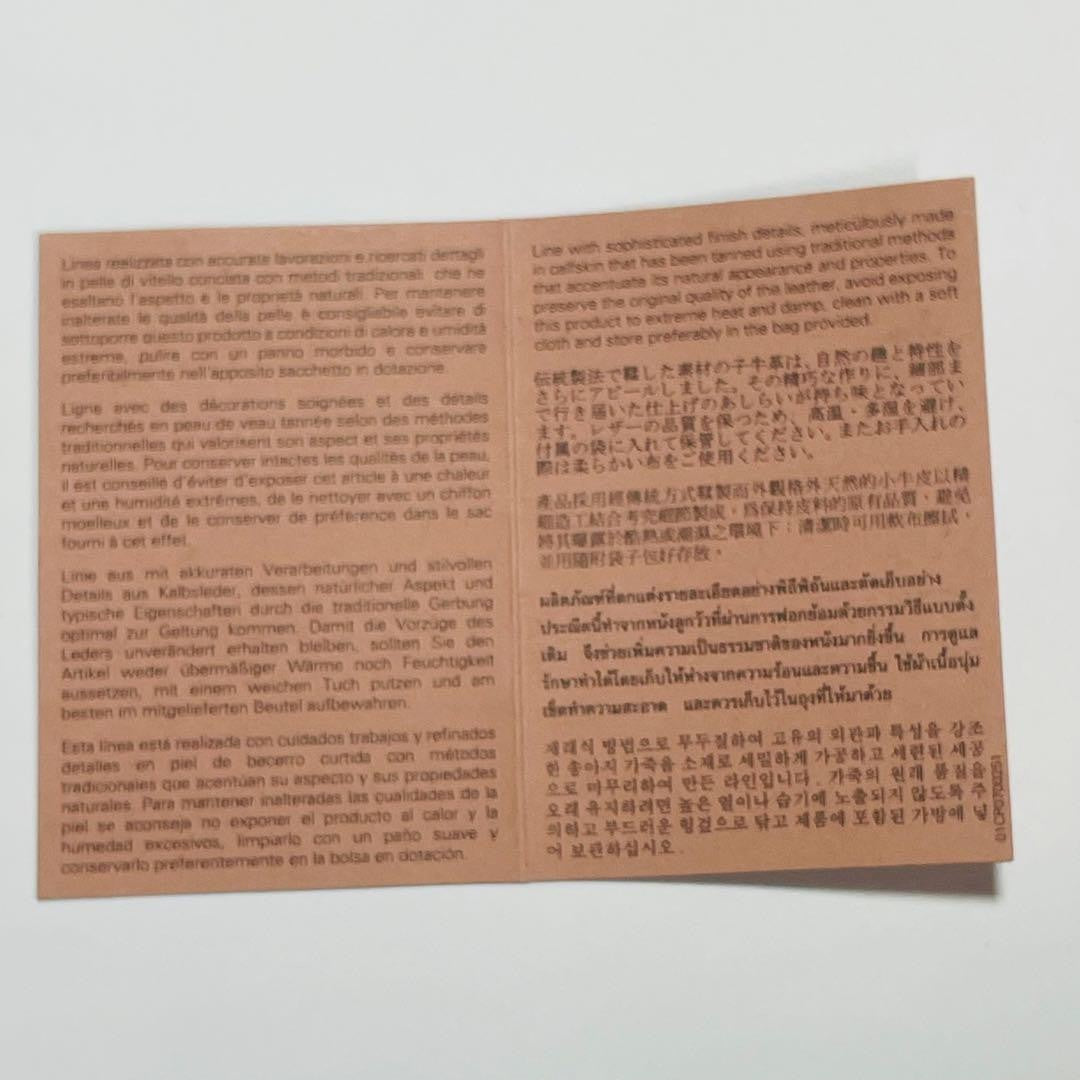 Linea realizzata con accurate lavorazioni e ricercati dettagli
in pelle di vitello conciata con metodi tradizionali che ne
esaltano l'aspetto e le proprietà naturali. Per mantenere
inalterate le qualità della pelle è consigliabile evitare di
sottoporre questo prodotto a condizioni di calore e umidità
estreme, pulire con un panno morbido e conservare
preferibilmente nell'apposito sacchetto in dotazione.
Ligne avec des décorations soignées et des détails
recherchés en peau de veau tannée selon des méthodes
traditionnelles qui valorisent son aspect et ses propriétés
naturelles. Pour conserver intactes les qualités de la peau,
il est conseillé d'éviter d'exposer cet article à une chaleur
et une humidité extrêmes, de le nettoyer avec un chiffon
moelleux et de le conserver de préférence dans le sac
fourni à cet effet.
Linie aus mit akkuraten Verarbeitungen und stilvollen
Details aus Kalbsleder, dessen natürlicher Aspekt und
typische Eigenschaften durch die traditionelle Gerbung
optimal zur Geltung kommen. Damit die Vorzüge des
Leders unverändert erhalten bleiben, sollten Sie den
Artikel weder übermäßiger Wärme noch Feuchtigkeit
aussetzen, mit einem weichen Tuch putzen und am
besten im mitgelieferten Beutel aufbewahren.
Esta línea está realizada con cuidados trabajos y refinados
detalles en piel de becerro curtida con métodos
tradicionales que acentúan su aspecto y sus propiedades
naturales. Para mantener inalteradas las cualidades de la
piel se aconseja no exponer el producto al calor y la
humedad excesivos, limpiarlo con un paño suave y
conservarlo preferentemente en la bolsa en dotación.
Line with sophisticated finish details, meticulously made
in calfskin that has been tanned using traditional methods
that accentuate its natural appearance and properties. To
preserve the original quality of the leather, avoid exposing
this product to extreme heat and damp, clean with a soft
cloth and store preferably in the bag provided.
伝統製法で鞣した素材の子牛革は、自然の趣と特性を
さらにアピールしました。その精巧な作りに、細部ま
で行き届いた仕上げのあしらいが持ち味となってい
ます。レザーの品質を保つため、高温・多湿を避け、
付属の袋に入れて保管してください。またお手入れの
際は柔らかい布をご使用ください。
產品採用經傳統方式鞣製而外觀格外天然的小牛皮以精
細造工結合考究細節製成，為保持皮料的原有品質，避免
將其曝露於酷熱或潮濕之環境下；清潔時可用軟布擦拭，
並用隨附袋子包好存放。
ผลิตภัณฑ์ที่ตกแต่งรายละเอียดอย่างพิถีพิถันและตัดเก็บอย่าง
ประณีตนี้ทำจากหนังลูกวัวที่ผ่านการฟอกย้อมด้วยกรรมวิธีแบบดั้ง
เดิม จึงช่วยเพิ่มความเป็นธรรมชาติของหนังมากยิ่งขึ้น การดูแล
รักษาทำได้โดยเก็บให้ห่างจากความร้อนและความชื้น ใช้ผ้าเนื้อนุ่ม
เช็ดทำความสะอาด และควรเก็บไว้ในถุงที่ให้มาด้วย
재래식 방법으로 무두질하여 고유의 외관과 특성을 강조
한 송아지 가죽을 소재로 세밀하게 가공하고 세련된 세공
으로 마무리하여 만든 라인입니다. 가죽의 원래 품질을
오래 유지하려면 높은 열이나 습기에 노출되지 않도록 주
의하고 부드러운 헝겊으로 닦고 제품에 포함된 가방에 넣
어 보관하십시오.